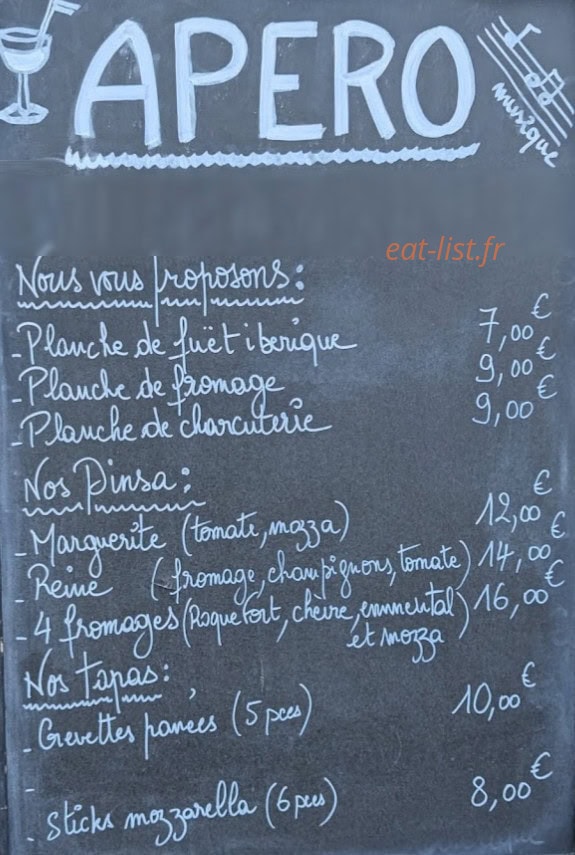 APERO
musique
eat-list.fr
Nous vous proposons:
- Planche de fuët iberique 7,00€
- Planche de fromage 9,00€
- Planche de charcuterie 9,00€
Nos Pinsa:
- Marguerite (tomate, mozza) 12,00€
- Reine (fromage, champignons, tomate) 14,00€
- 4 fromages (Roquefort, chèvre, emmental 16,00€
et mozza)
Nos tapas:
- Crevettes panées (5 pces) 10,00€
-
- Sticks mozzarella (6 pces) 8,00€